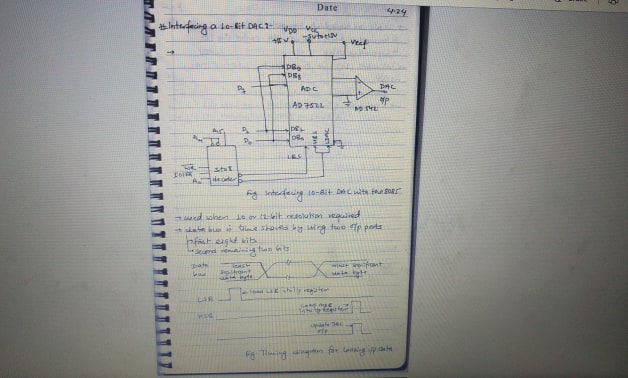 Date
4:24
# Interfacing a 10-Bit DAC :-
VDD
VCC
+5V
Vref
→
DB9
DB8
D7
ADC
DAC
O/P
AD 7522
AD 542
D1
DB1
D0
DB0
A15
LBS
3 to 8
decoder
WR
A0
Fig Interfacing 10-Bit DAC with the 8085
→ used when 10 or 12-bit resolution required
→ data bus is time shared by using two o/p ports
first eight bits
second remaining two bits
Data
bus
least
significant
byte
most significant
byte
LSB
load LSB into i/p register
MSB
Load MSB
into i/p Register
update DAC
o/p
Fig Timing diagram for loading i/p data